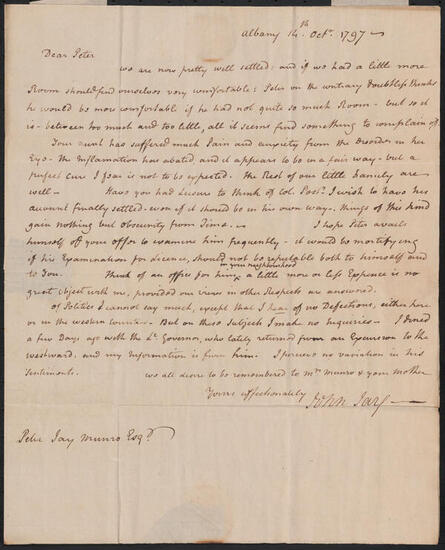 Albany 14th. Octr. 1797—
Dear Peter
we are now pretty well settled; and if we had a little more
Room should find ourselves very comfortable; Peter on the contrary doubtless thinks
he would be more comfortable if he had not quite so much Room - but so it
is - between too much and too little, all it seems find something to complain of.
Your aunt has suffered much Pain and anxiety from the disorder in her
Eye - the Inflamation has abated, and it appears to be in a fair way - but a
perfect cure I fear is not to be expected. the Rest of our little Family are
well - Have you had Leisure to think of Col. Post? I wish to have his
account finally settled - even if it should be in his own way. things of this kind
gain nothing but obscurity from Time. - I hope Peter avails
himself of your offer to examine him frequently - it would be mortifying
if his Examination for licence, should not be reputable both to himself and
to You. Think of an office for him in your neighbourhood, a little more or less Expence is no
great object with me, provided our views in other Respects are answered.
of Politics I cannot say much, except that I hear of no Defections, either here
or in the western counties - But on these Subjects I make no Inquiries - I dined
a few Days ago with the Lt. Governor, who lately returned from an Excursion to the
westward, and my Information is from him. I perceive no variation in his
Sentiments. we all desire to be remembered to Mrs. Munro & your Mother
Yours affectionately
John Jay —
Peter Jay Munro Esqr.